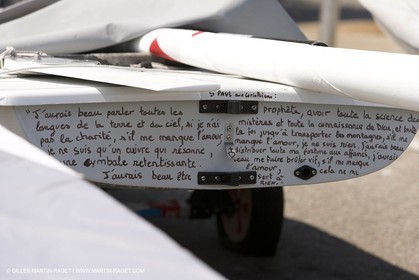 St PAUL aux Corinthiens
"J'aurais beau parler toutes les
langues de la terre et du ciel, si je n'ai
pas la charité, s'il me manque l'amour,
je ne suis qu'un cuivre qui résonne,
une cymbale retentissante.
J'aurais beau être
prophète, avoir toute la science des
mystères et toute la connaissance de Dieu, et toute
la foi jusqu'à transporter les montagnes, s'il me
manque l'amour, je ne suis rien. J'aurais beau
distribuer toute ma fortune aux affamés, j'aurais
beau me faire brûler vif, s'il me manque
l'amour, cela ne me
sert à
RIEN.
© GILLES MARTIN-RAGET / WWW.MARTIN-RAGET.COM